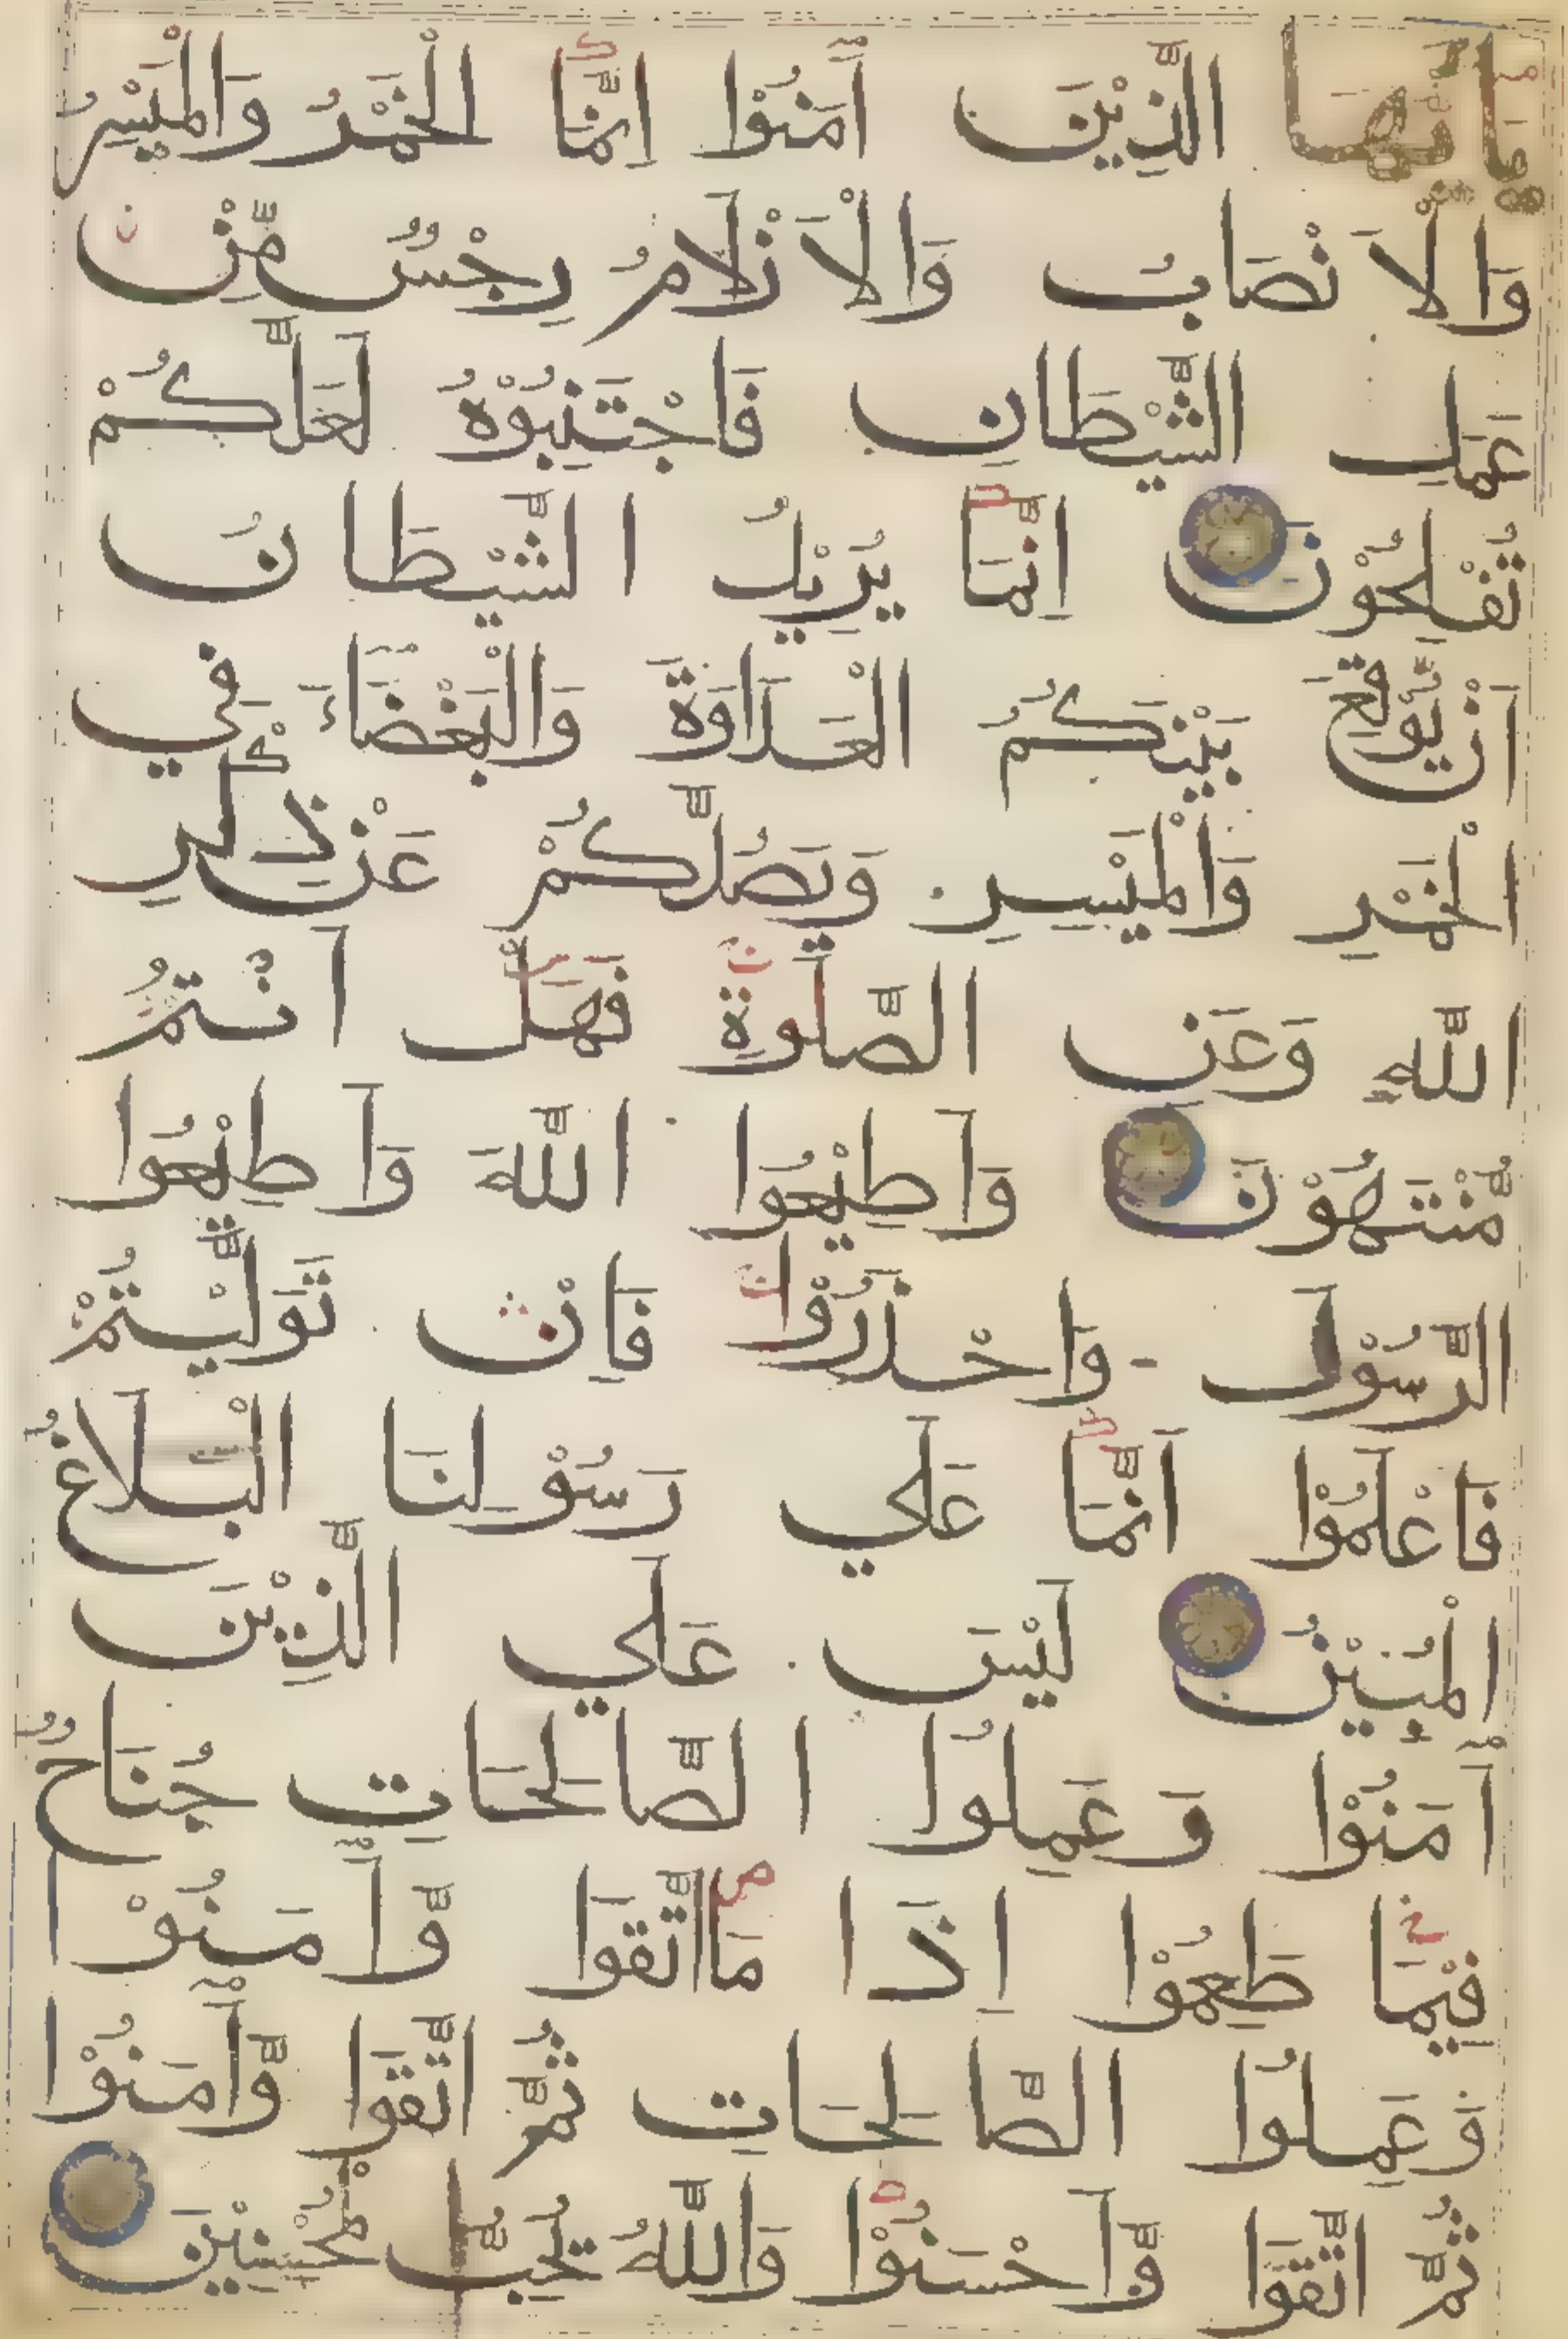 يٰاَيُّهَا الَّذِيْنَ اٰمَنُوْا اِنَّمَا الْخَمْرُ وَالْمَيْسِرُ
وَالْاَنْصَابُ وَالْاَزْلَامُ رِجْسٌ مِّنْ
عَمَلِ الشَّيْطَانِ فَاجْتَنِبُوْهُ لَعَلَّكُمْ
تُفْلِحُوْنَ اِنَّمَا يُرِيْدُ الشَّيْطَانُ
اَنْ يُّوْقِعَ بَيْنَكُمُ الْعَدَاوَةَ وَالْبَغْضَاءَ فِي
الْخَمْرِ وَالْمَيْسِرِ وَيَصُدَّكُمْ عَنْ ذِكْرِ
اللّٰهِ وَعَنِ الصَّلٰوةِ فَهَلْ اَنْتُمْ
مُّنْتَهُوْنَ وَاَطِيْعُوا اللّٰهَ وَاَطِيْعُوا
الرَّسُوْلَ وَاحْذَرُوْا فَاِنْ تَوَلَّيْتُمْ
فَاعْلَمُوْا اَنَّمَا عَلَي رَسُوْلِنَا الْبَلَاغُ
الْمُبِيْنُ لَيْسَ عَلَي الَّذِيْنَ
اٰمَنُوْا وَعَمِلُوا الصَّالِحَاتِ جُنَاحٌ
فِيْمَا طَعِمُوْا اِذَا مَا اتَّقَوا وَّاٰمَنُوْا
وَعَمِلُوا الصَّالِحَاتِ ثُمَّ اتَّقَوْا وَّاٰمَنُوْا
ثُمَّ اتَّقَوا وَّاَحْسَنُوْا وَاللّٰهُ يُحِبُّ الْمُحْسِنِيْنَ